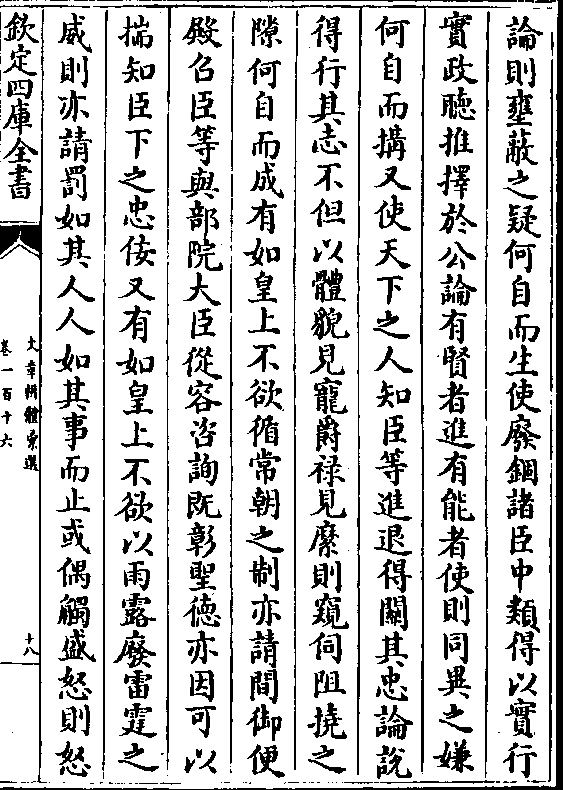 論則壅蔽之疑何自而生使廢錮諸臣中類得以實行
實政聽推擇於公論有賢者進有能者使則同異之嫌
何自而搆又使天下之人知臣等進退得關其忠論說
得行其志不但以體貌見寵爵祿見縻則窺伺阻撓之
隙何自而成有如皇上不欲循常朝之制亦請間御便
殿召臣等與部院大臣從容咨詢既彰聖德亦因可以
揣知臣下之忠佞又有如皇上不欲以雨露廢雷霆之
威則亦請罰如其人人如其事而止或偶觸盛怒則怒
欽定四庫全書
文章辨體彙選
卷一百十六
十八